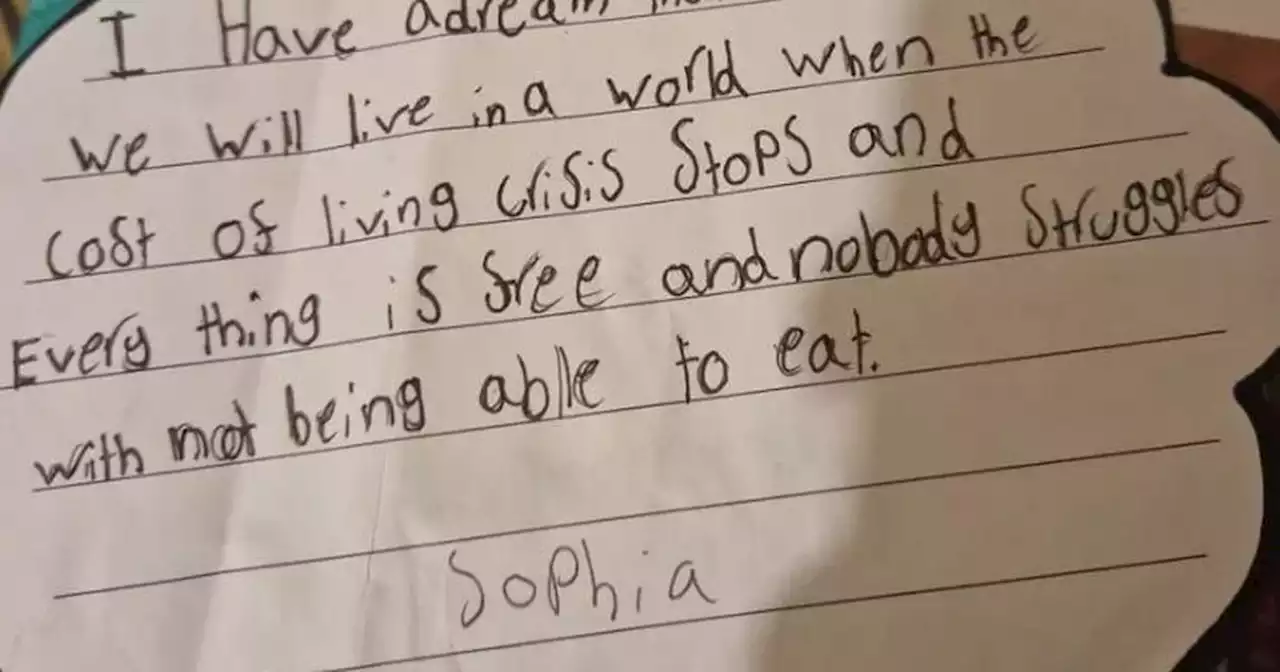 I Have a dream
we will live in a world when the
cost of living crisis Stops and
Every thing is free and nobody struggles
with not being able to eat.
Sophia